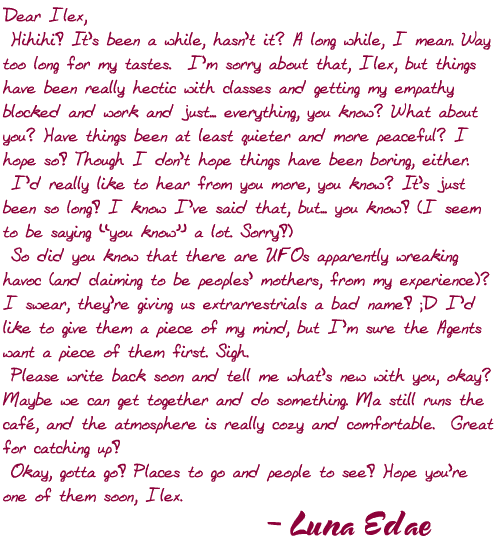 Dear Ilex,
Hihihi! It's been a while, hasn't it? A long while, I mean. Way
too long for my tastes. I'm sorry about that, Ilex, but things
have been really hectic with classes and getting my empathy
blocked and work and just... everything, you know? What about
you? Have things been at least quieter and more peaceful? I
hope so! Though I don't hope things have been boring, either.
I'd really like to hear from you more, you know? It's just
been so long! I know I've said that, but... you know? (I seem
to be saying "you know" a lot. Sorry!)
So did you know that there are UFOs apparently wreaking
havoc (and claiming to be peoples' mothers, from my experience)?
I swear, they're giving us extrarrestrials a bad name! ;D I'd
like to give them a piece of my mind, but I'm sure the Agents
want a piece of them first. Sigh.
Please write back soon and tell me what's new with you, okay?
Maybe we can get together and do something. Ma still runs the
café, and the atmosphere is really cozy and comfortable. Great
for catching up!
Okay, gotta go! Places to go and people to see! Hope you're
one of them soon, Ilex.
- Luna Edae